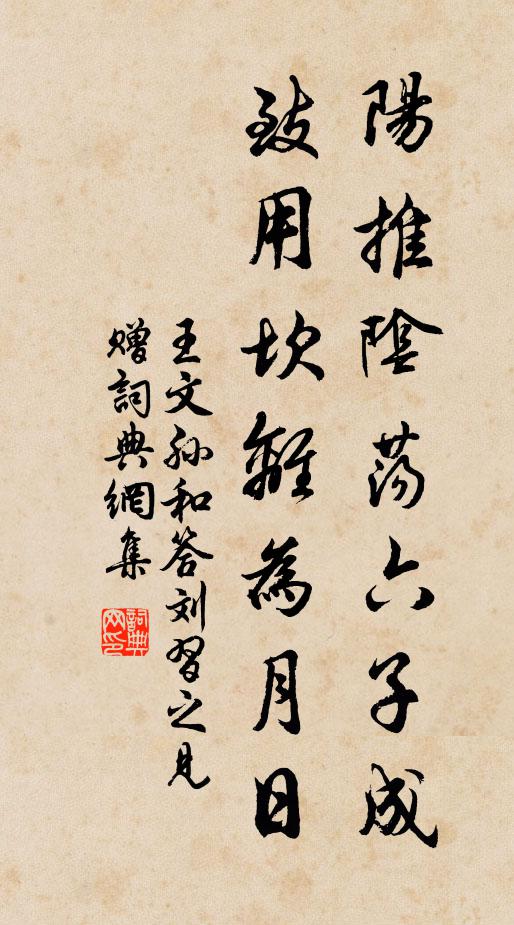 陽推陰蕩六子成
致用坎離為月日
王文孙和答刘習之見
贈詞典網集
詞典
网印